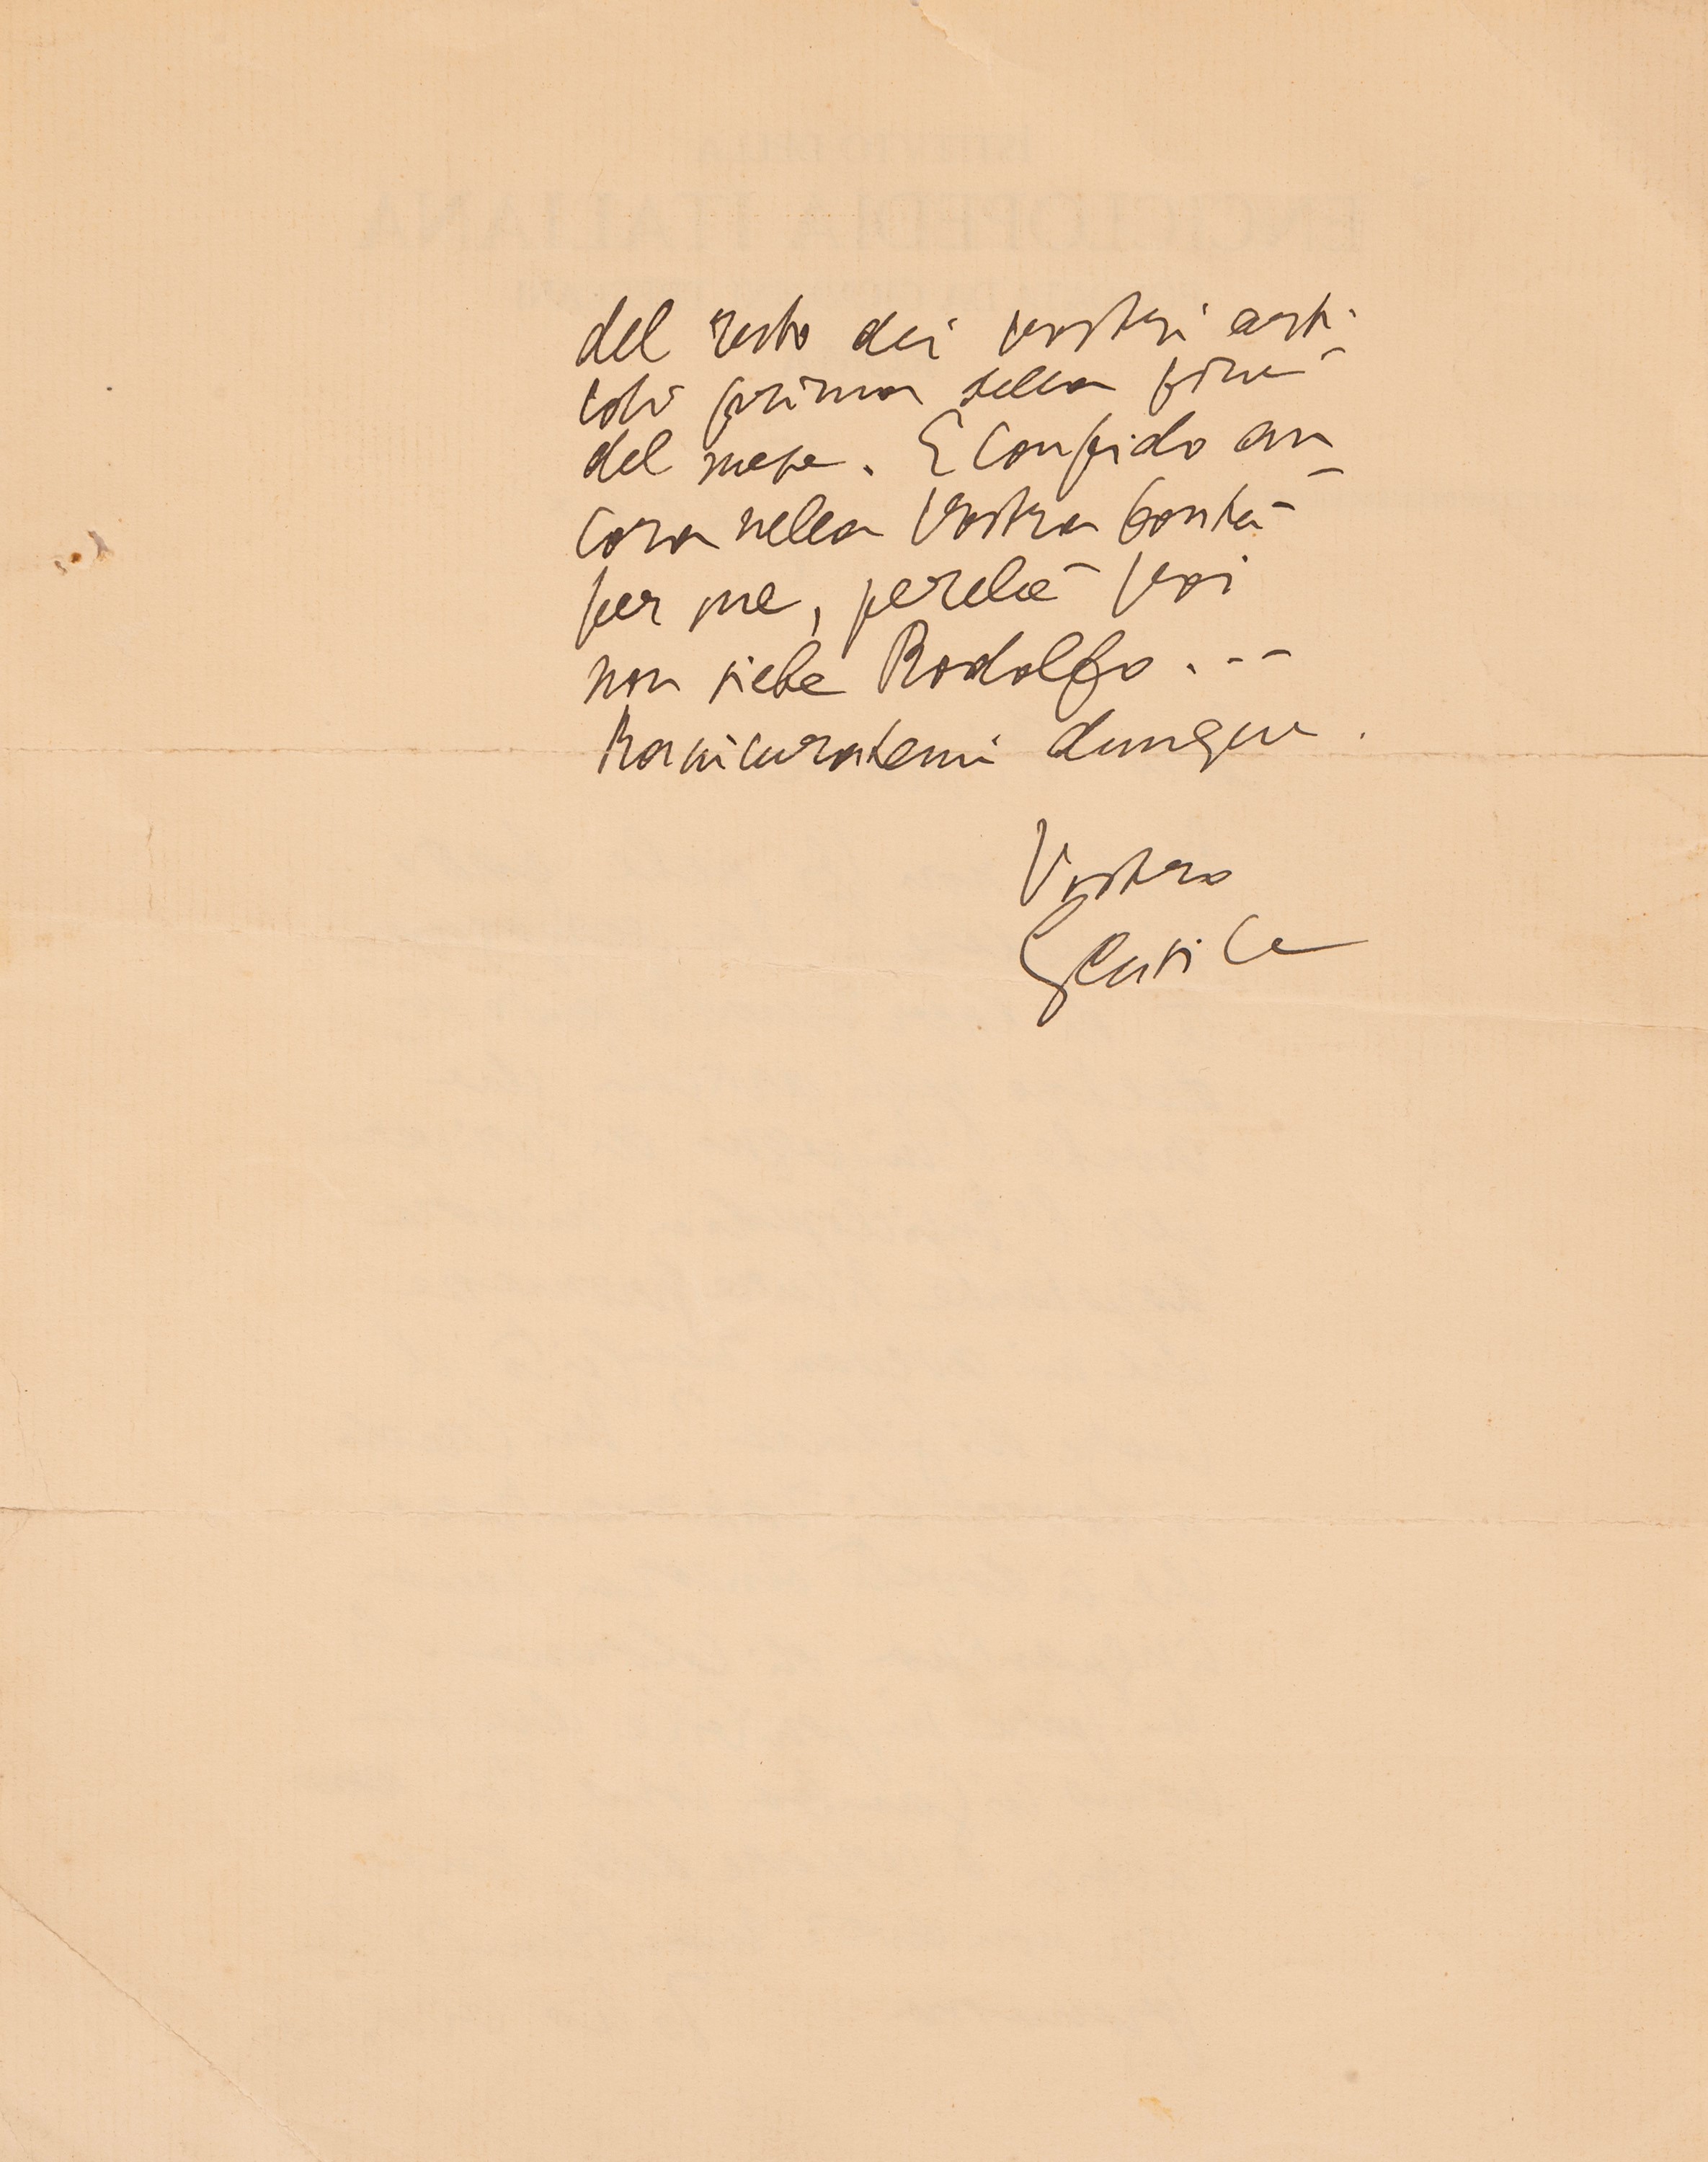 del resto dei vostri arti-
coli prima della fine
del mese. E confido an-
cora nella Vostra bontà
per me, perchè Voi
non siete Rodolfo...
Rassicuratemi dunque.
Vostro